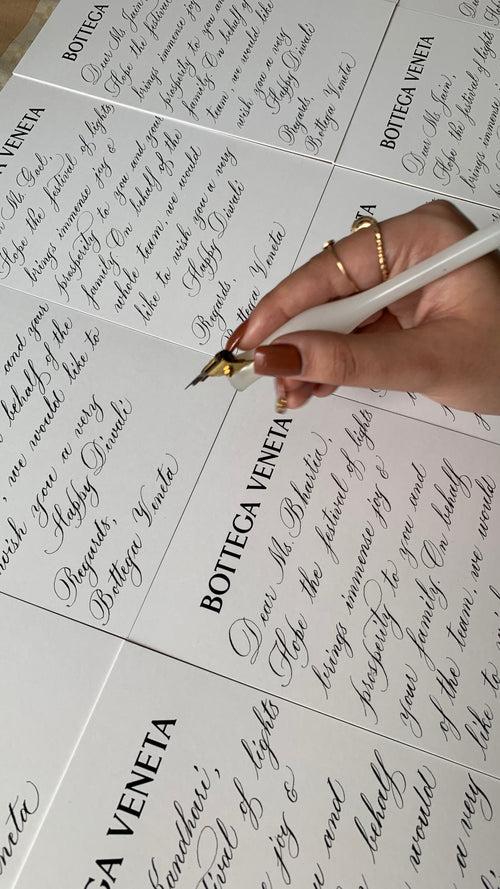 BOTTEGA
Dear Ms. Jain,
Hope the festival
brings immense joy
prosperity to you and
family. On behalf of
team, we would like
wish you a very
Happy Diwali
Regards,
Bottega Veneta
BOTTEGA VENETA
Dear Ms. Jain,
Hope the festival of lights
brings immense
VENETA
Ms. Goel,
Hope the festival of lights
brings immense joy &
prosperity to you and your
family. On behalf of the
whole team, we would
like to wish you a very
Happy Diwali
Regards,
Bottega Veneta
and your
behalf of the
, we would like to
wish you a very
Happy Diwali
Regards,
Bottega Veneta
BOTTEGA VENETA
Dear Ms. Bhartia,
Hope the festival of lights
brings immense joy &
prosperity to you and
your family. On behalf
of the team, we would
like to
GA VENETA
of lights
joy &
and
behalf
would
a very